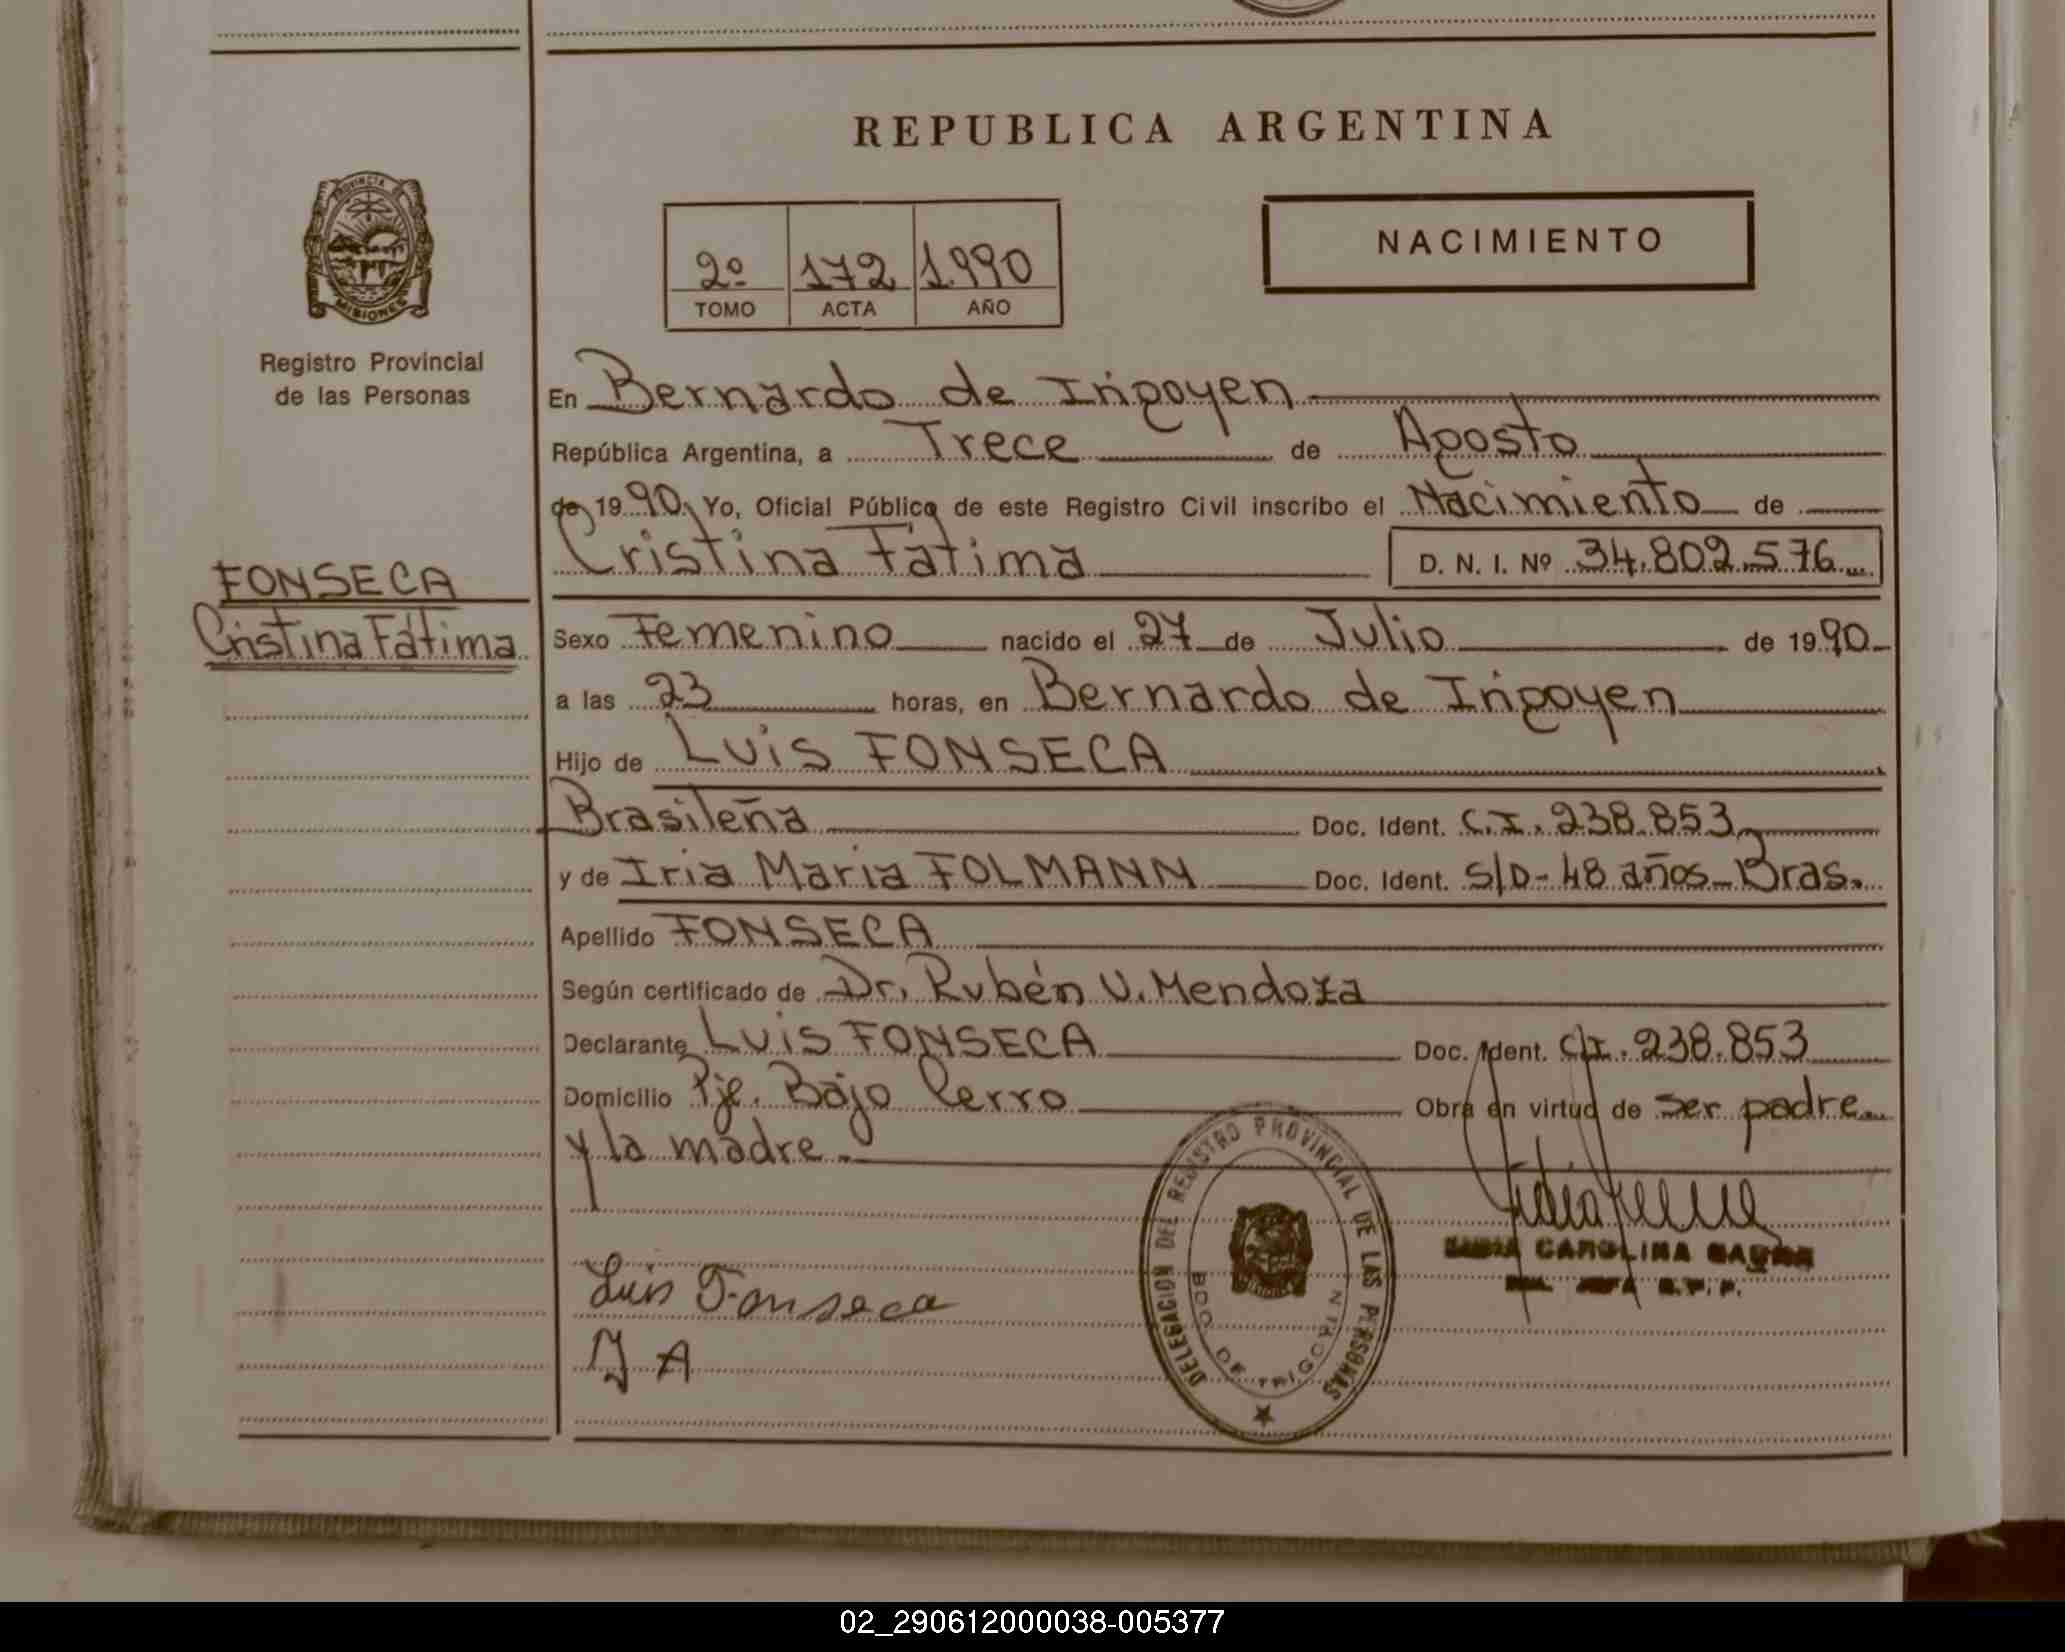 REPUBLICA ARGENTINA
PROVINCIA DE
MISIONES
Registro Provincial
de las Personas
2º 172 1.990
TOMO ACTA AÑO
NACIMIENTO
En Bernardo de Irigoyen
República Argentina, a Trece de Agosto
de 1990. Yo, Oficial Público de este Registro Civil inscribo el Nacimiento de
Cristina Fátima D. N. I. Nº 34.802.576
FONSECA
Cristina Fátima
Sexo Femenino nacido el 27 de Julio de 1990
a las 23 horas, en Bernardo de Irigoyen
Hijo de Luis FONSECA
Brasileña Doc. Ident. C.I. 238.853
y de Iria Maria FOLMANN Doc. Ident. S/D- 48 años- Bras.
Apellido FONSECA
Según certificado de Dr. Rubén U. Mendoza
Declarante Luis FONSECA Doc. Ident. C.I. 238.853
Domicilio Pje. Bajo Cerro Obra en virtud de ser padre
y la madre.
DELEGACION DEL REGISTRO PROVINCIAL DE LAS PERSONAS
BDO DE IRIGOYEN
CAROLINA
R.P.P.
Luis Fonseca
02_290612000038-005377